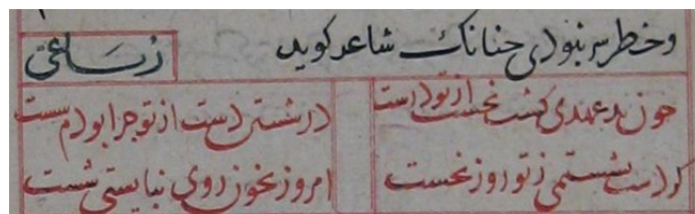 و خطر سر نبودی چنانک شاعر کوید رباعی
چون بدعهدی کشت نخست از تو درست در شستن دست از تو چرا بودم سست
کر دست بشستمی ز تو روز نخست امروز بخون روی نبایستی شست